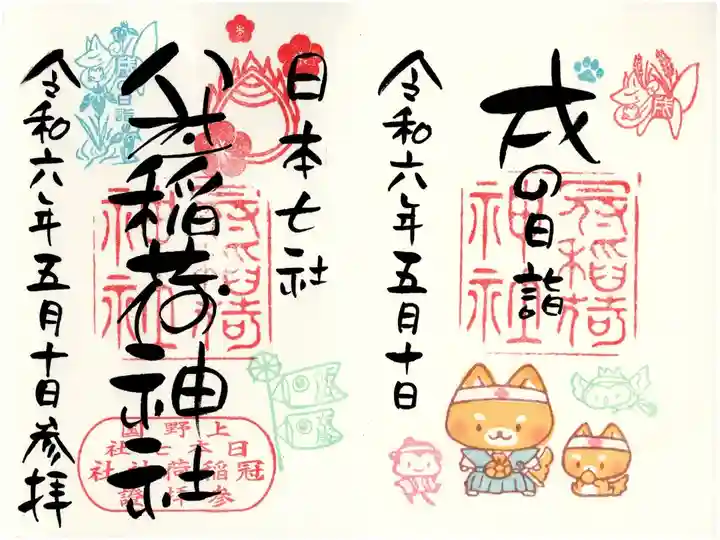 戌の日詣
令和六年五月十日
冠稲荷
神社
日本七社
冠稲荷神社
令和六年五月十日参拝
冠稲荷
神社
上野國
日本七社
冠稲荷神社
参拝證